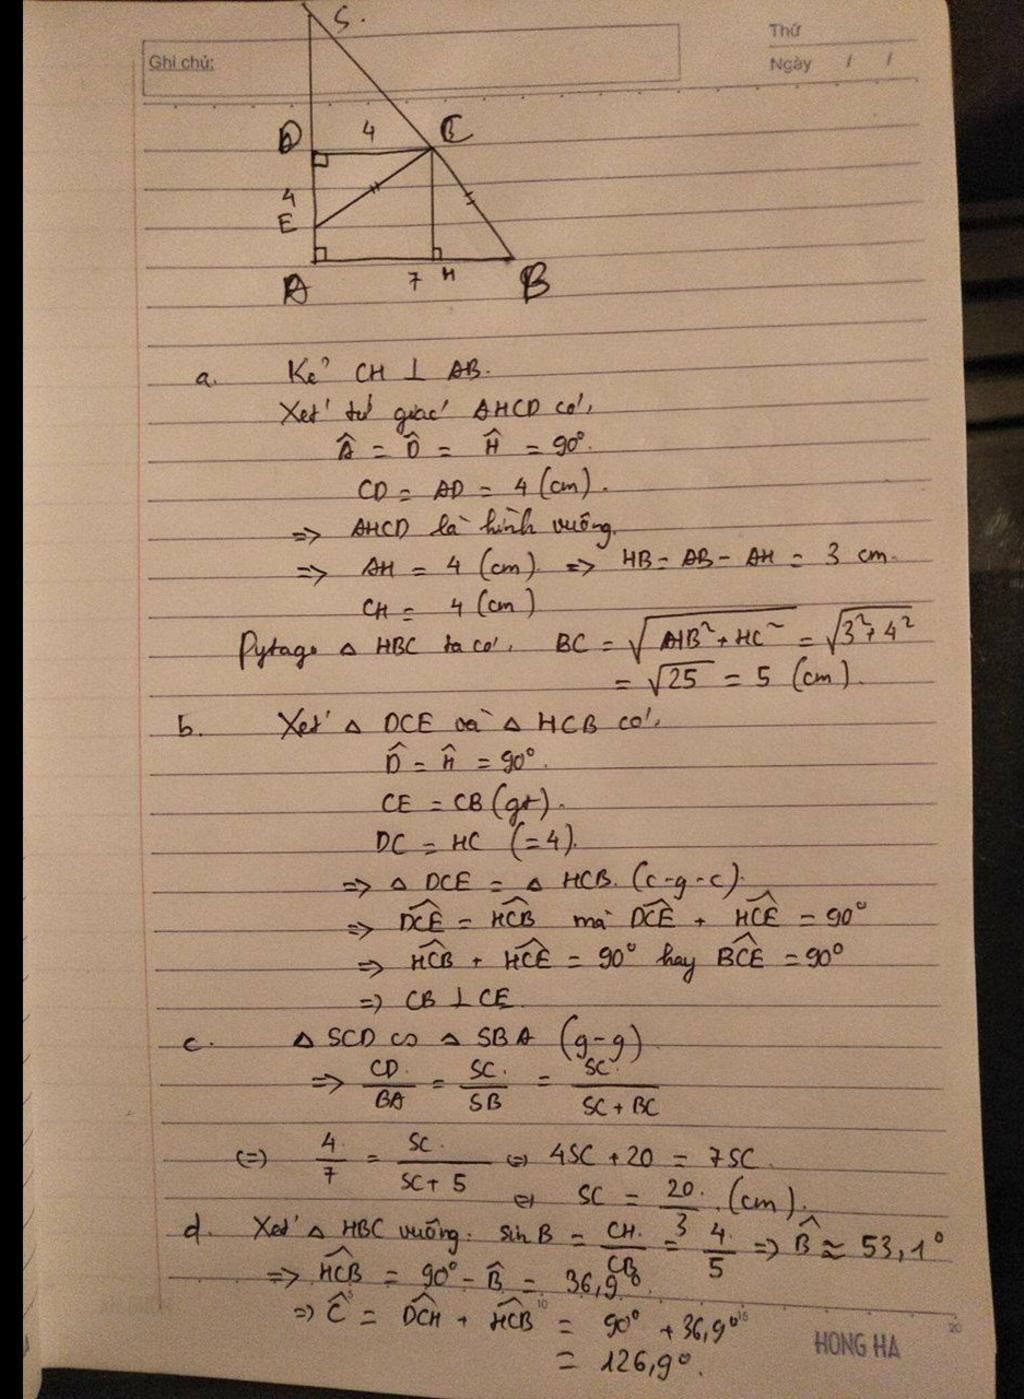 S.
Thứ
Ghi chú:
Ngày / /
D 4 C
4
E
A 7 H B
a. Kẻ CH ⊥ AB.
Xét tứ giác AHCD có,
Â = D̂ = Ĥ = 90°.
CD = AD = 4 (cm).
=> AHCD là hình vuông.
=> AH = 4 (cm) => HB = AB - AH = 3 cm.
CH = 4 (cm)
Pytago △ HBC ta có, BC = √(HB² + HC²) = √(3² + 4²)
= √25 = 5 (cm).
b. Xét △ DCE và △ HCB có,
D̂ = Ĥ = 90°.
CE = CB (gt).
DC = HC (=4).
=> △ DCE = △ HCB. (c-g-c).
=> DCÊ = HCB̂ mà DCÊ + HCÊ = 90°
=> HCB̂ + HCÊ = 90° hay BCÊ = 90°
=> CB ⊥ CE.
c. △ SCD ∽ △ SBA (g-g)
=> CD/BA = SC/SB = SC/(SC + BC)
(=) 4/7 = SC/(SC + 5) (=) 4SC + 20 = 7SC.
(=) SC = 20/3 (cm).
d. Xét △ HBC vuông. sin B = CH/CB = 4/5 => B̂ ≈ 53,1°
=> HCB̂ = 90° - B̂ = 36,9°
=> Ĉ = DCĤ + HCB̂ = 90° + 36,9°
= 126,9°.
5 10 15 20
HONG HA